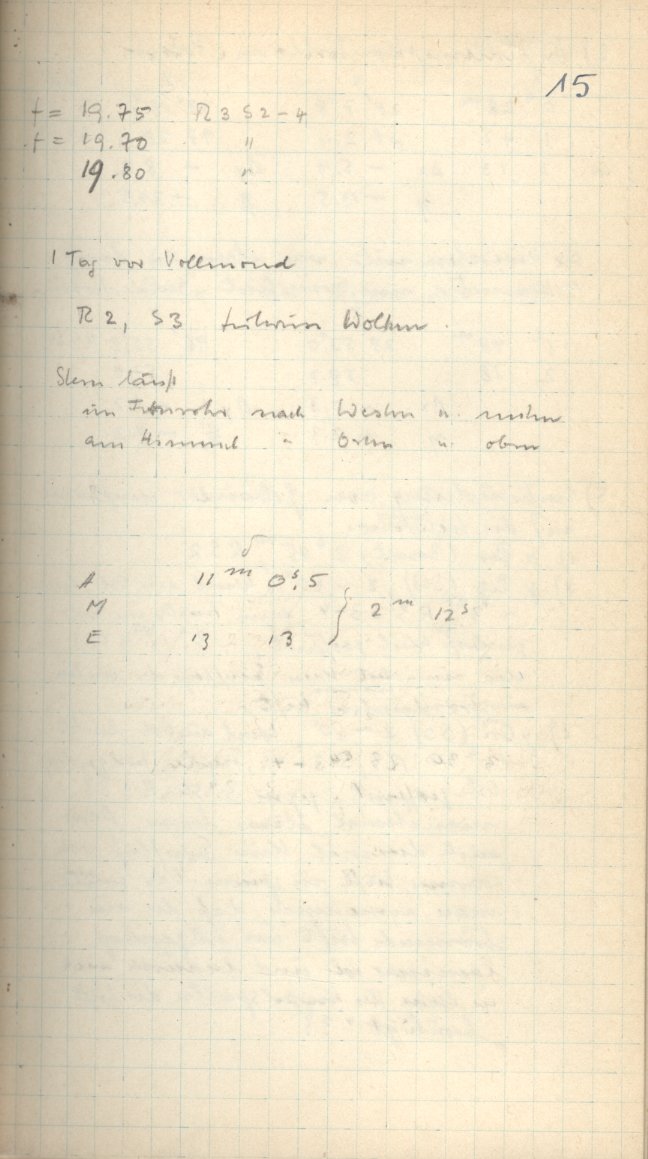 15
f = 19.75 R 3 S 2-4
f = 19.70 "
19.80 "
1 Tag vor Vollmond
R 2, S 3 teilweise Wolken.
Stern läuft
im Fernrohr nach Westen u. unten
am Himmel " Osten u. oben
δ
A 11 m 0s,5
M } 2 m 12s
E 13 13